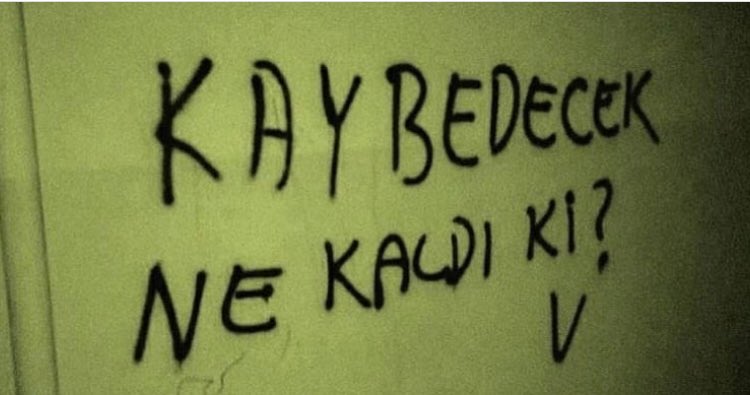 KAYBEDECEK
NE KALDI Kİ?
V